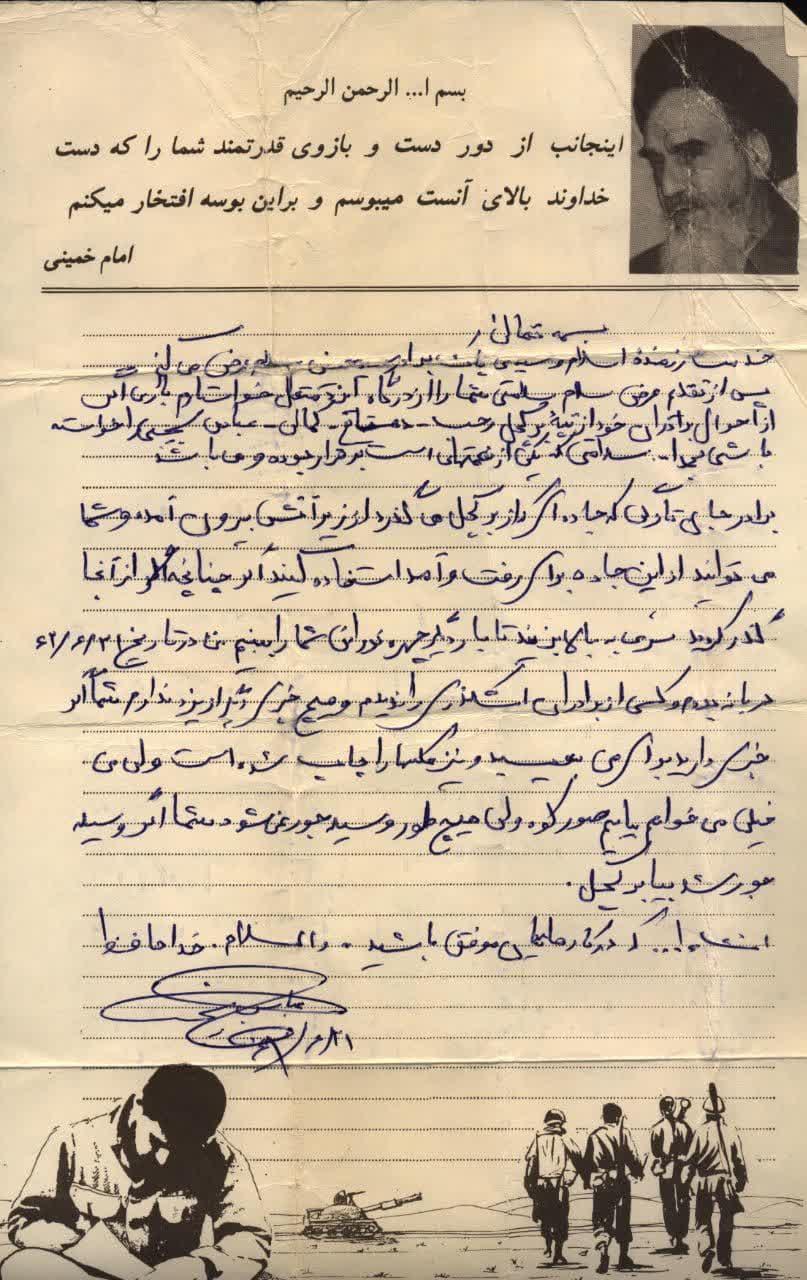 بسم ا... الرحمن الرحیم
اینجانب از دور دست و بازوی قدرتمند شما را که دست
خداوند بالای آنست میبوسم و براین بوسه افتخار میکنم
امام خمینی
بسمه تعالی
خدمت رزمندۀ اسلام و سلام عرض می کنم
پس از تقدیم عرض سلام سلامتی شما را از درگاه ایزد متعال خواستارم باری اگر
از احوال برادران خود از تپۀ برکچل رجب - - کمالی - عباس را خواسته
باشی بحمدا... سلامتی که یکی از نعمتهای است برقرار بوده و می باشد
برادر جای که جاده ای را از برکچل می گذرد از زیر آتش بیرون آمده و شما
می توانید از این جاده برای رفت و آمد استفاده کنید اگر چنانچه از آنجا
گذر کردید سری به ما بزنید تا بار دیگر چهره نورانی شما را ببینیم من در تاریخ ۶۲/۶/۳
در بانه بودم و کسی از برادران اشکذری را ندیدم و هیچ خبری دیگر از یزد ندارم شما اگر
خبری دارید برای من بنویسید و نیز عکسها را چاپ شده است ولی من
خیلی می خواهم بیایم ولی هیچ طور وسیله جور نمی شود شما اگر وسیله
جور شد بیا برکچل.
انشاء ا... که در کارهایتان موفق باشید. والسلام. خداحافظ